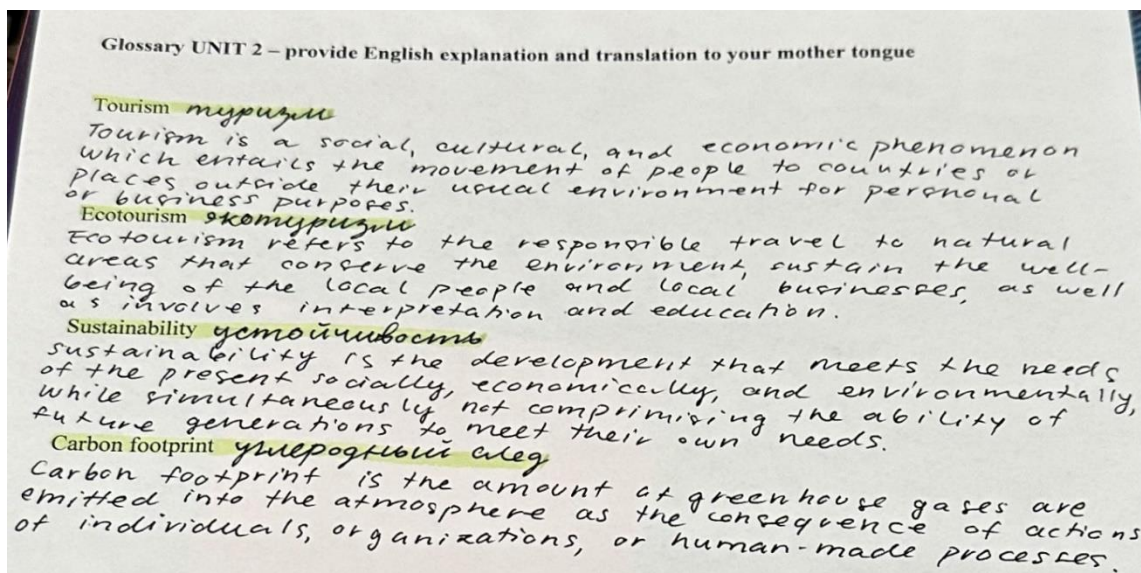 Glossary UNIT 2 – provide English explanation and translation to your mother tongue
Tourism туризм
Tourism is a social, cultural, and economic phenomenon
which entails the movement of people to countries or
places outside their usual environment for personal
or business purposes.
Ecotourism экотуризм
Ecotourism refers to the responsible travel to natural
areas that conserve the environment, sustain the well-
being of the local people and local businesses, as well
as involves interpretation and education.
Sustainability устойчивость
sustainability is the development that meets the needs
of the present socially, economically, and environmentally,
while simultaneously not comprimising the ability of
future generations to meet their own needs.
Carbon footprint углеродный след
Carbon footprint is the amount of greenhouse gases are
emitted into the atmosphere as the consequence of actions
of individuals, organizations, or human-made processes.